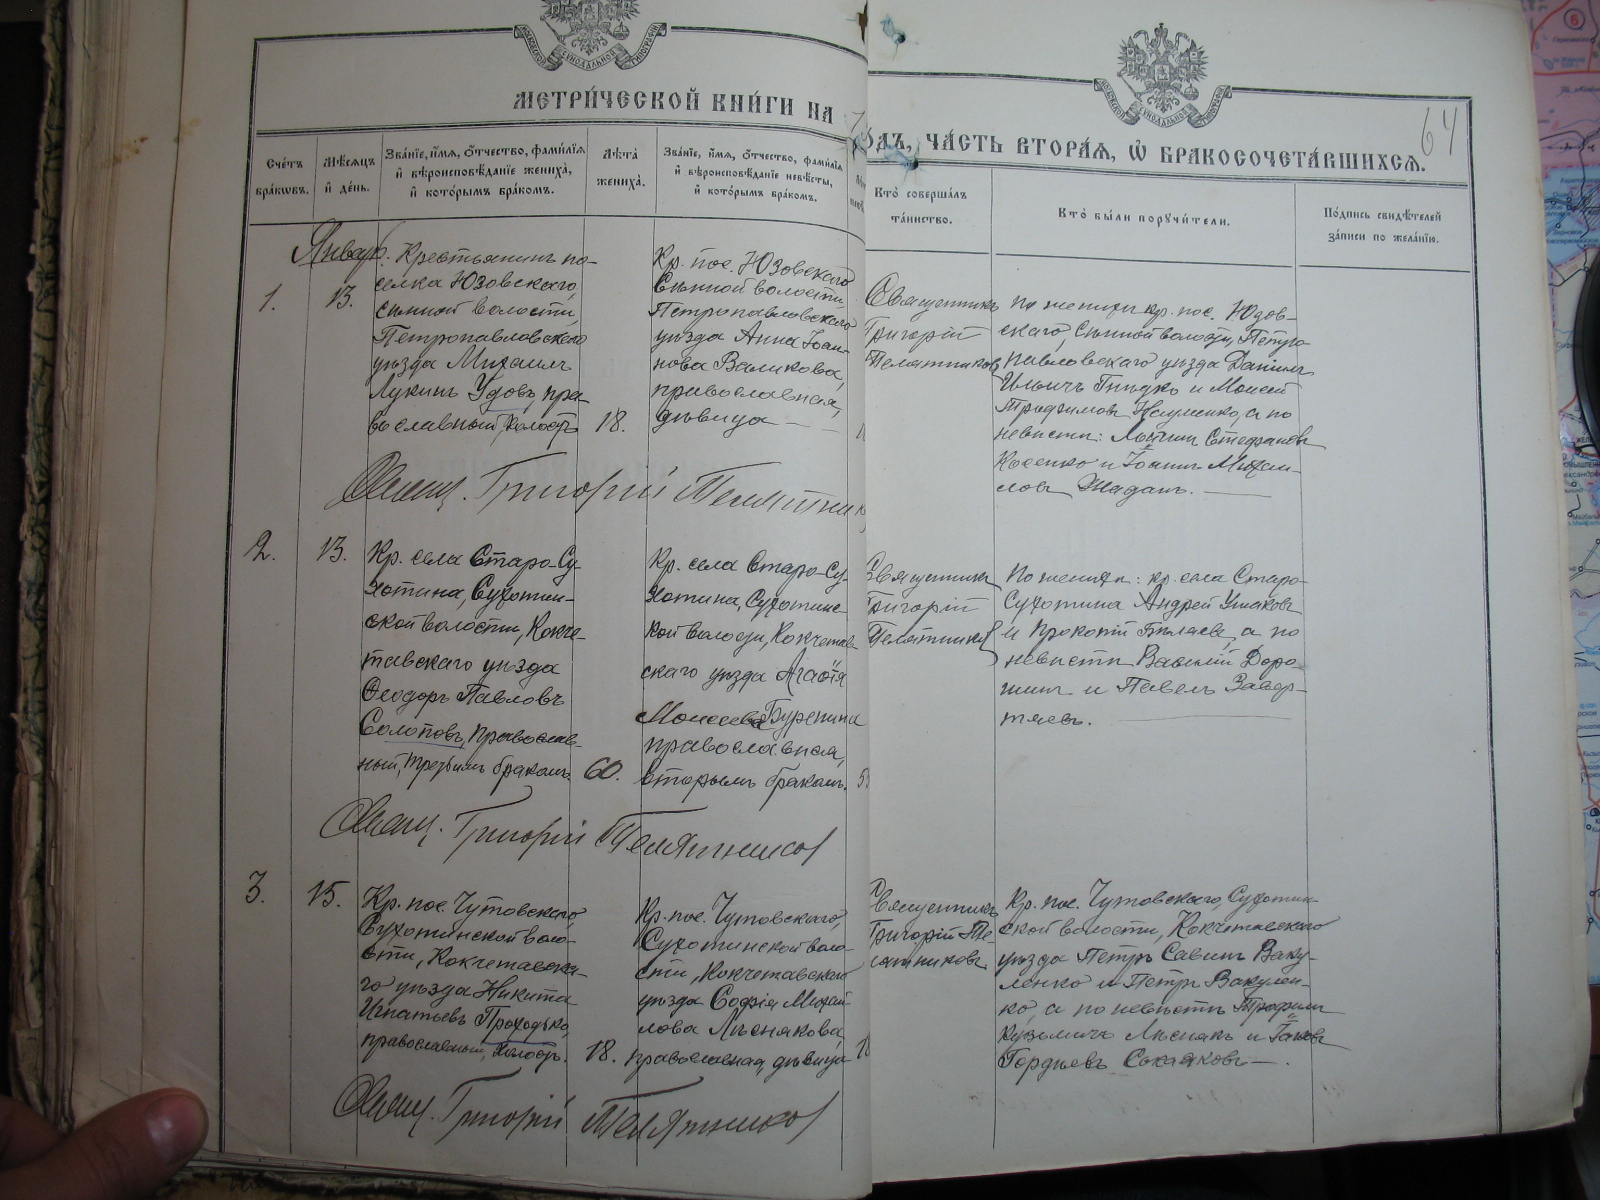 МОСКОВСКОЙ СѶНОДАЛЬНОЙ ТИПОГРАФІИ
МЕТРИ́ЧЕСКОЙ КНИ́ГИ НА
ГОДЪ, ЧА́СТЬ ВТОРА́Я, Ѡ БРАКОСОЧЕТА́ВШИХСЯ.
64
Сче́тъ бра́ковъ.
Мѣ́сяцъ и́ де́нь.
Зва́нїе, и́мя, о́тчество, фами́лїя и́ вѣроисповѣ́данїе жениха̀, и́ кото́рымъ бра́комъ.
Лѣ́та жениха̀.
Зва́нїе, и́мя, о́тчество, фами́лїя и́ вѣроисповѣ́данїе невѣ́сты, и́ кото́рымъ бра́комъ.
Кто̀ соверша́лъ та́инство.
Кто̀ бы́ли порꙋчи́тели.
По́дпись свидѣ́телей за́писи по жела́нїю.
Январь.
1.
13.
Крестьянинъ по-
селка Юзовскаго,
сѣнной волости,
Петропавловскаго
уѣзда Михаилъ
Лукинъ Удовъ, пра-
вославный, холостъ
18.
Кр. пос. Юзовскаго
Сѣнной волости,
Петропавловскаго
уѣзда Анна Іоан-
нова Валикова,
православная,
дѣвица
Священникъ
Григорій
Телятниковъ
По женихѣ кр. пос. Юзов-
скаго, Сѣнной волости, Петро-
павловскаго уѣзда Даніилъ
Ильичъ Гнидко и Моисей
Трофимовъ Науменко, а по
невѣстѣ: Логгинъ Стефановъ
Косенко и Іоаннъ Михаи-
ловъ Жаданъ.
Свящ. Григорій Телятник
2.
13.
Кр. села Старо-Су-
хотина, Сухотин-
ской волости, Кокче-
тавскаго уѣзда
Ѳеодоръ Павловъ
Солоповъ, православ-
ный, третьимъ бракомъ.
60.
Кр. села Старо-Су-
хотина, Сухотинс-
кой волости, Кокчетав-
скаго уѣзда Агаѳія
Моисеева Буренина
православная,
вторымъ бракомъ.
Священникъ
Григорій
Телятниковъ
По женихѣ: кр. села Старо-
Сухотина Андрей Ушаковъ
и Прокопій Бѣляевъ, а по
невѣстѣ Василій Доро-
шинъ и Павелъ Завер-
тяевъ.
Свящ. Григорій Телятников
3.
15.
Кр. пос. Чутовскаго,
Сухотинской воло-
сти, Кокчетавска-
го уѣзда Никита
Игнатьевъ Проходько,
православный, холостъ.
18.
Кр. пос. Чутовскаго,
Сухотинской воло-
сти, Кокчетавскаго
уѣзда Софія Михай-
лова Лѣснякова,
православная, дѣвица
Священникъ
Григорій Те-
лятниковъ
Кр. пос. Чутовскаго, Сухотин-
ской волости, Кокчетавскаго
уѣзда Петръ Савинъ Ваку-
ленко и Петръ Вакулен-
ко, а по невѣстѣ Трофимъ
Кузьмичъ Лѣснякъ и Іаковъ
Гордѣевъ
Свящ. Григорій Телятников